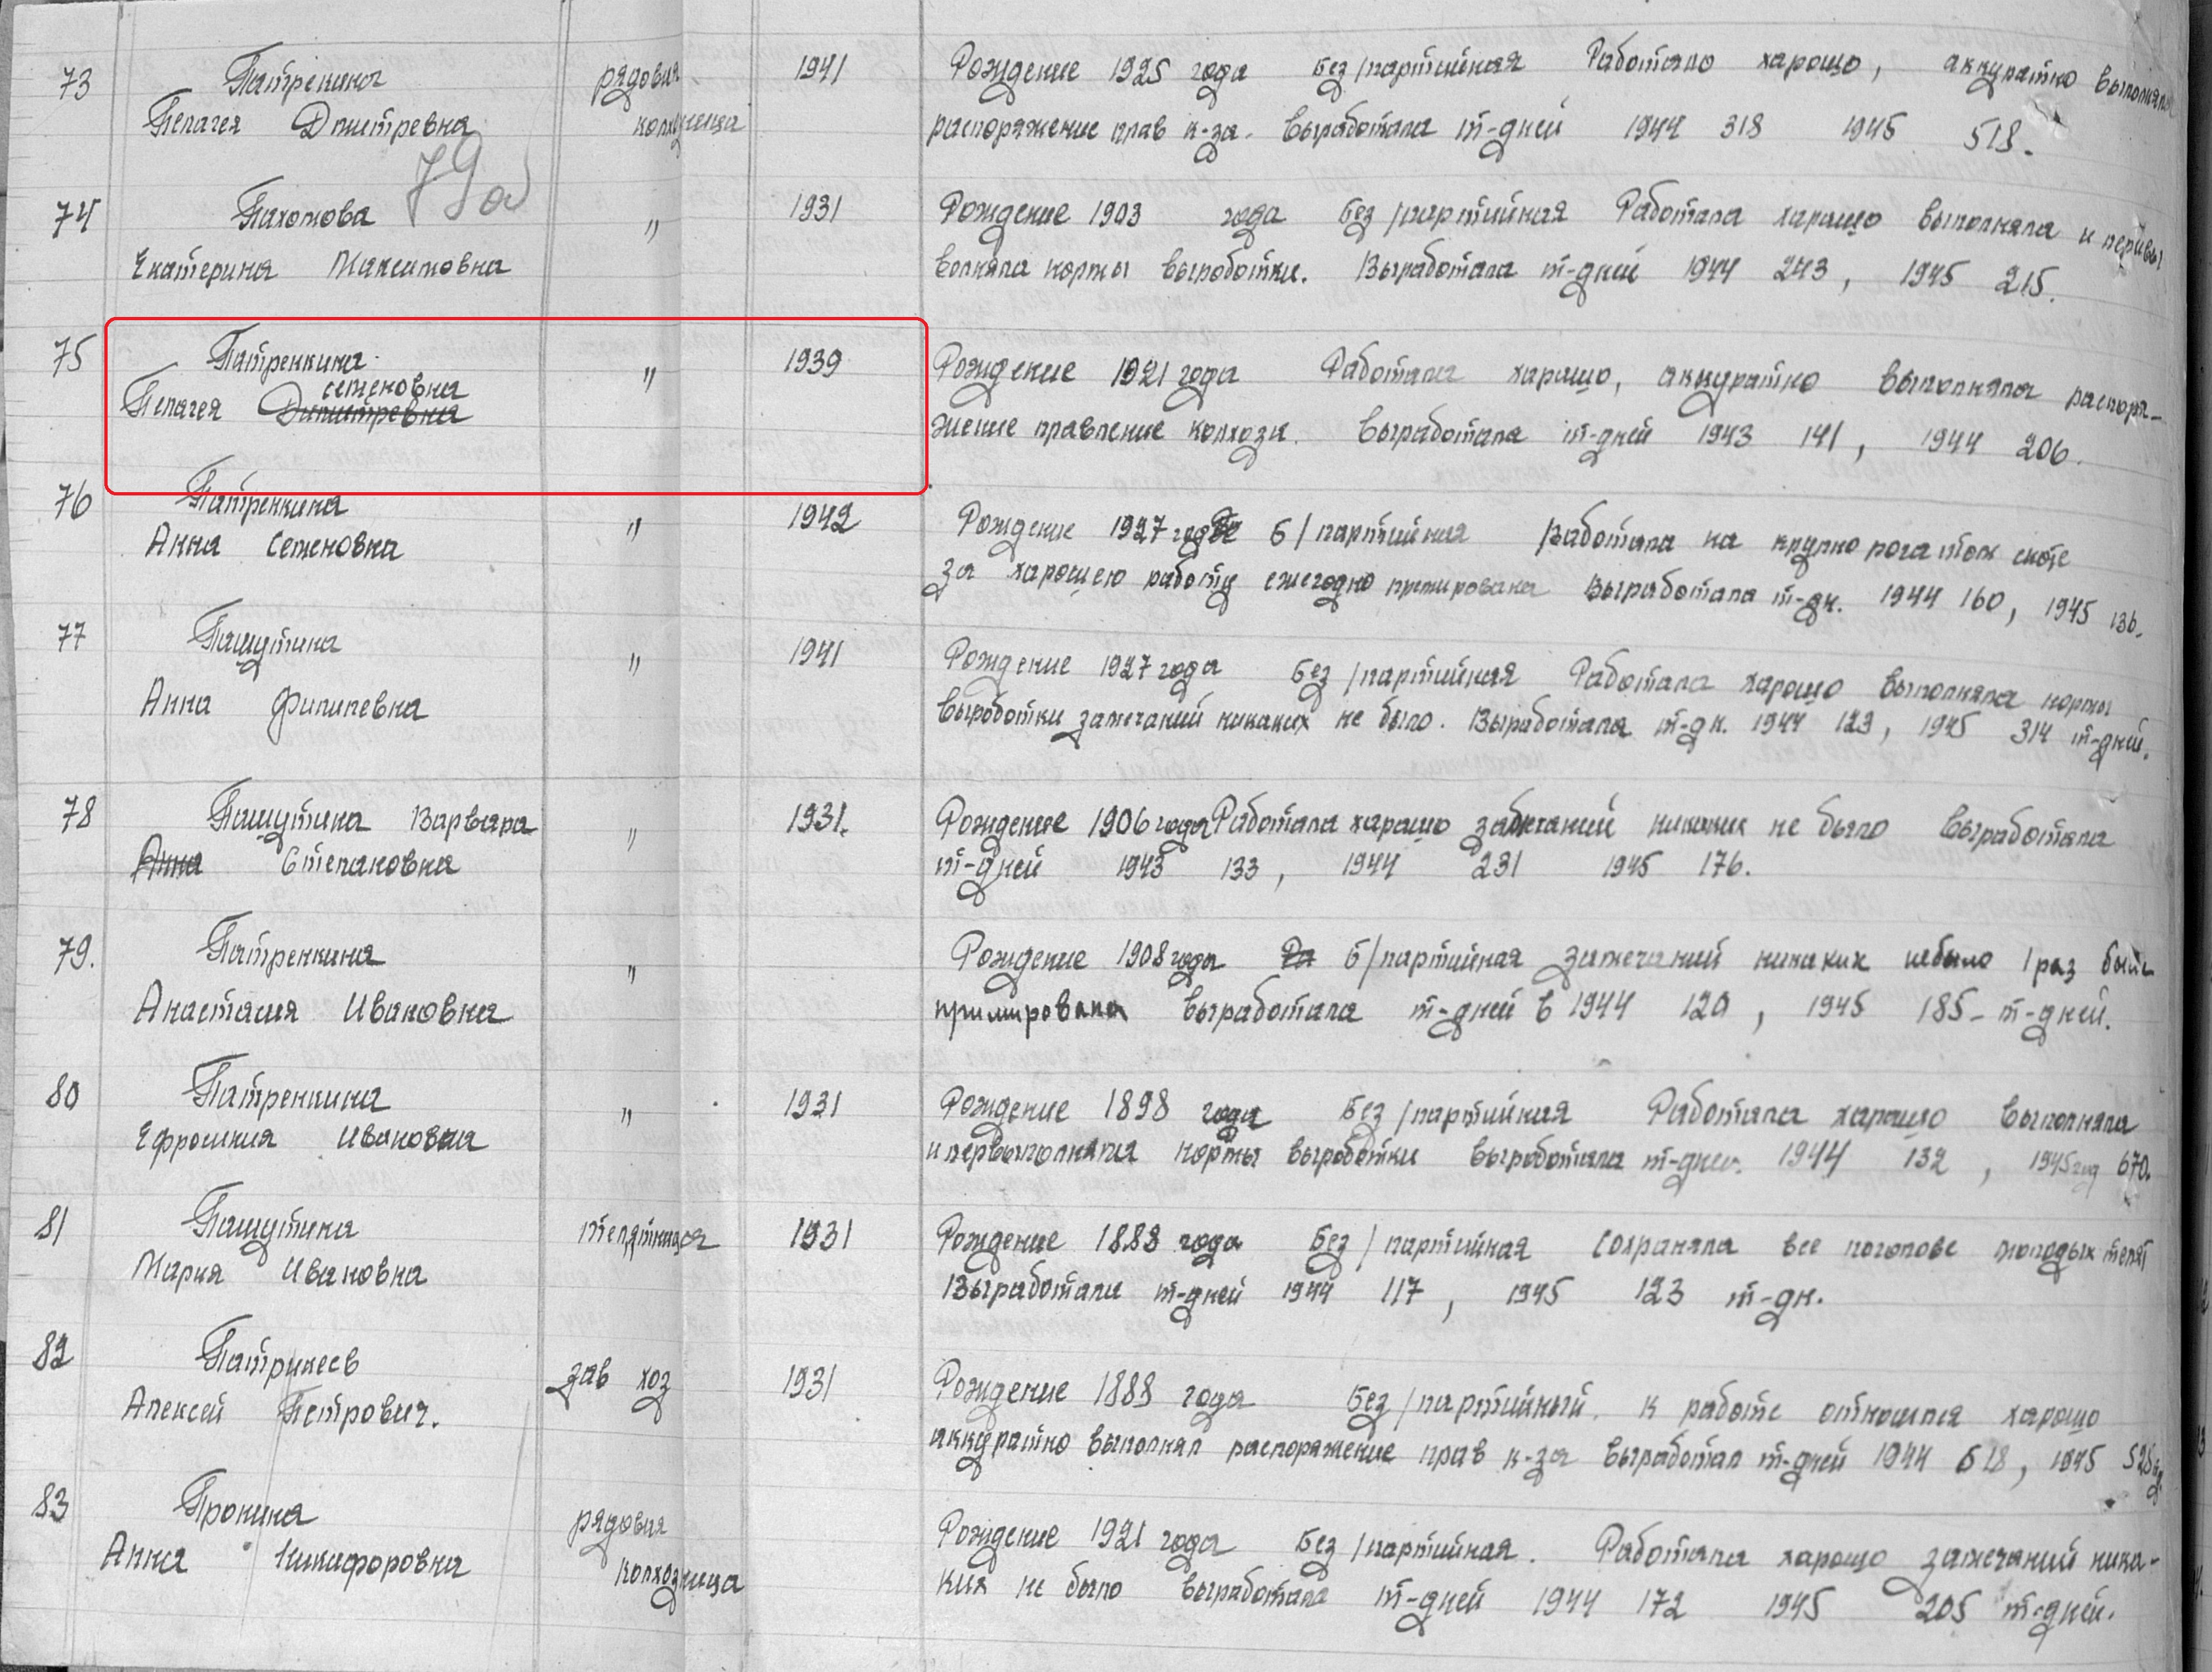 73 Патрекина рядовая 1941 Рождение 1925 года без/партийная Работало харошо, аккуратно выполняла
Пелагея Дмитревна колхозница распоряжение прав к-за. Выработала т-дней 1944 318 1945 518.
79а
74 Пахомова " 1931 Рождение 1903 года без/партийная Работала харашо выполняла и перевы
Екатерина Максимовна волняла нормы выроботки. Выработала т-дней 1944 243, 1945 215.
75 Патренкина " 1939 Рождение 1921 года Работала харашо, аккуратно выполняла распоря-
семеновна
Пелагея Дмитревна жение правление колхоза. Выработала т-дней 1943 141, 1944 206.
76 Патренкина " 1942 Рождение 1927 года б/партийная работала на крупно рогатом скоте
Анна Семеновна за харошею работу ежегодно премирована Выработала т-дн. 1944 160, 1945 136.
77 Пашутина " 1941 Рождение 1927 года Без/партийная Работала харашо выполняла нормы
Анна Филипевна выроботки замечаний никаких не было. Выработала т-дн. 1944 123, 1945 314 т-дней.
78 Пашутина Варвара " 1931. Рождение 1906 года Работала харашо замечаний никаких не было выработала
Анна Степановна т-дней 1943 133, 1944 231 1945 176.
79. Патренкина " Рождение 1908 года Ра б/партийная замечаний никаких небыло 1 раз была
Анастасия Ивановна примирована выработала т-дней в 1944 120, 1945 185- т-дней.
80 Патренкина " 1931 Рождение 1898 года Без/партийная Работала харашо выполняла
Ефрошния Ивановна и первыполняла нормы выроботки выработала т-дней. 1944 132, 1945 год 670.
81 Пашутина телятница 1931 Рождение 1888 года Без/партийная Сохраняла все поголове молодых телят
Мария Ивановна Выработали т-дней 1944 117, 1945 123 т-дн.
82 Патрикеев зав хоз 1931 Рождение 1888 года Без/партийный. К работе относился харошо
Алексей Петрович. аккуратно выполнял распоряжение прав к-за выработал т-дней 1944 618, 1945
83 Пронина рядовая Рождение 1921 года Без/партийная. Работала харошо замечаний ника-
Анна Никифоровна колхозница ких не было выработала т-дней 1944 172 1945 205 т-дней.